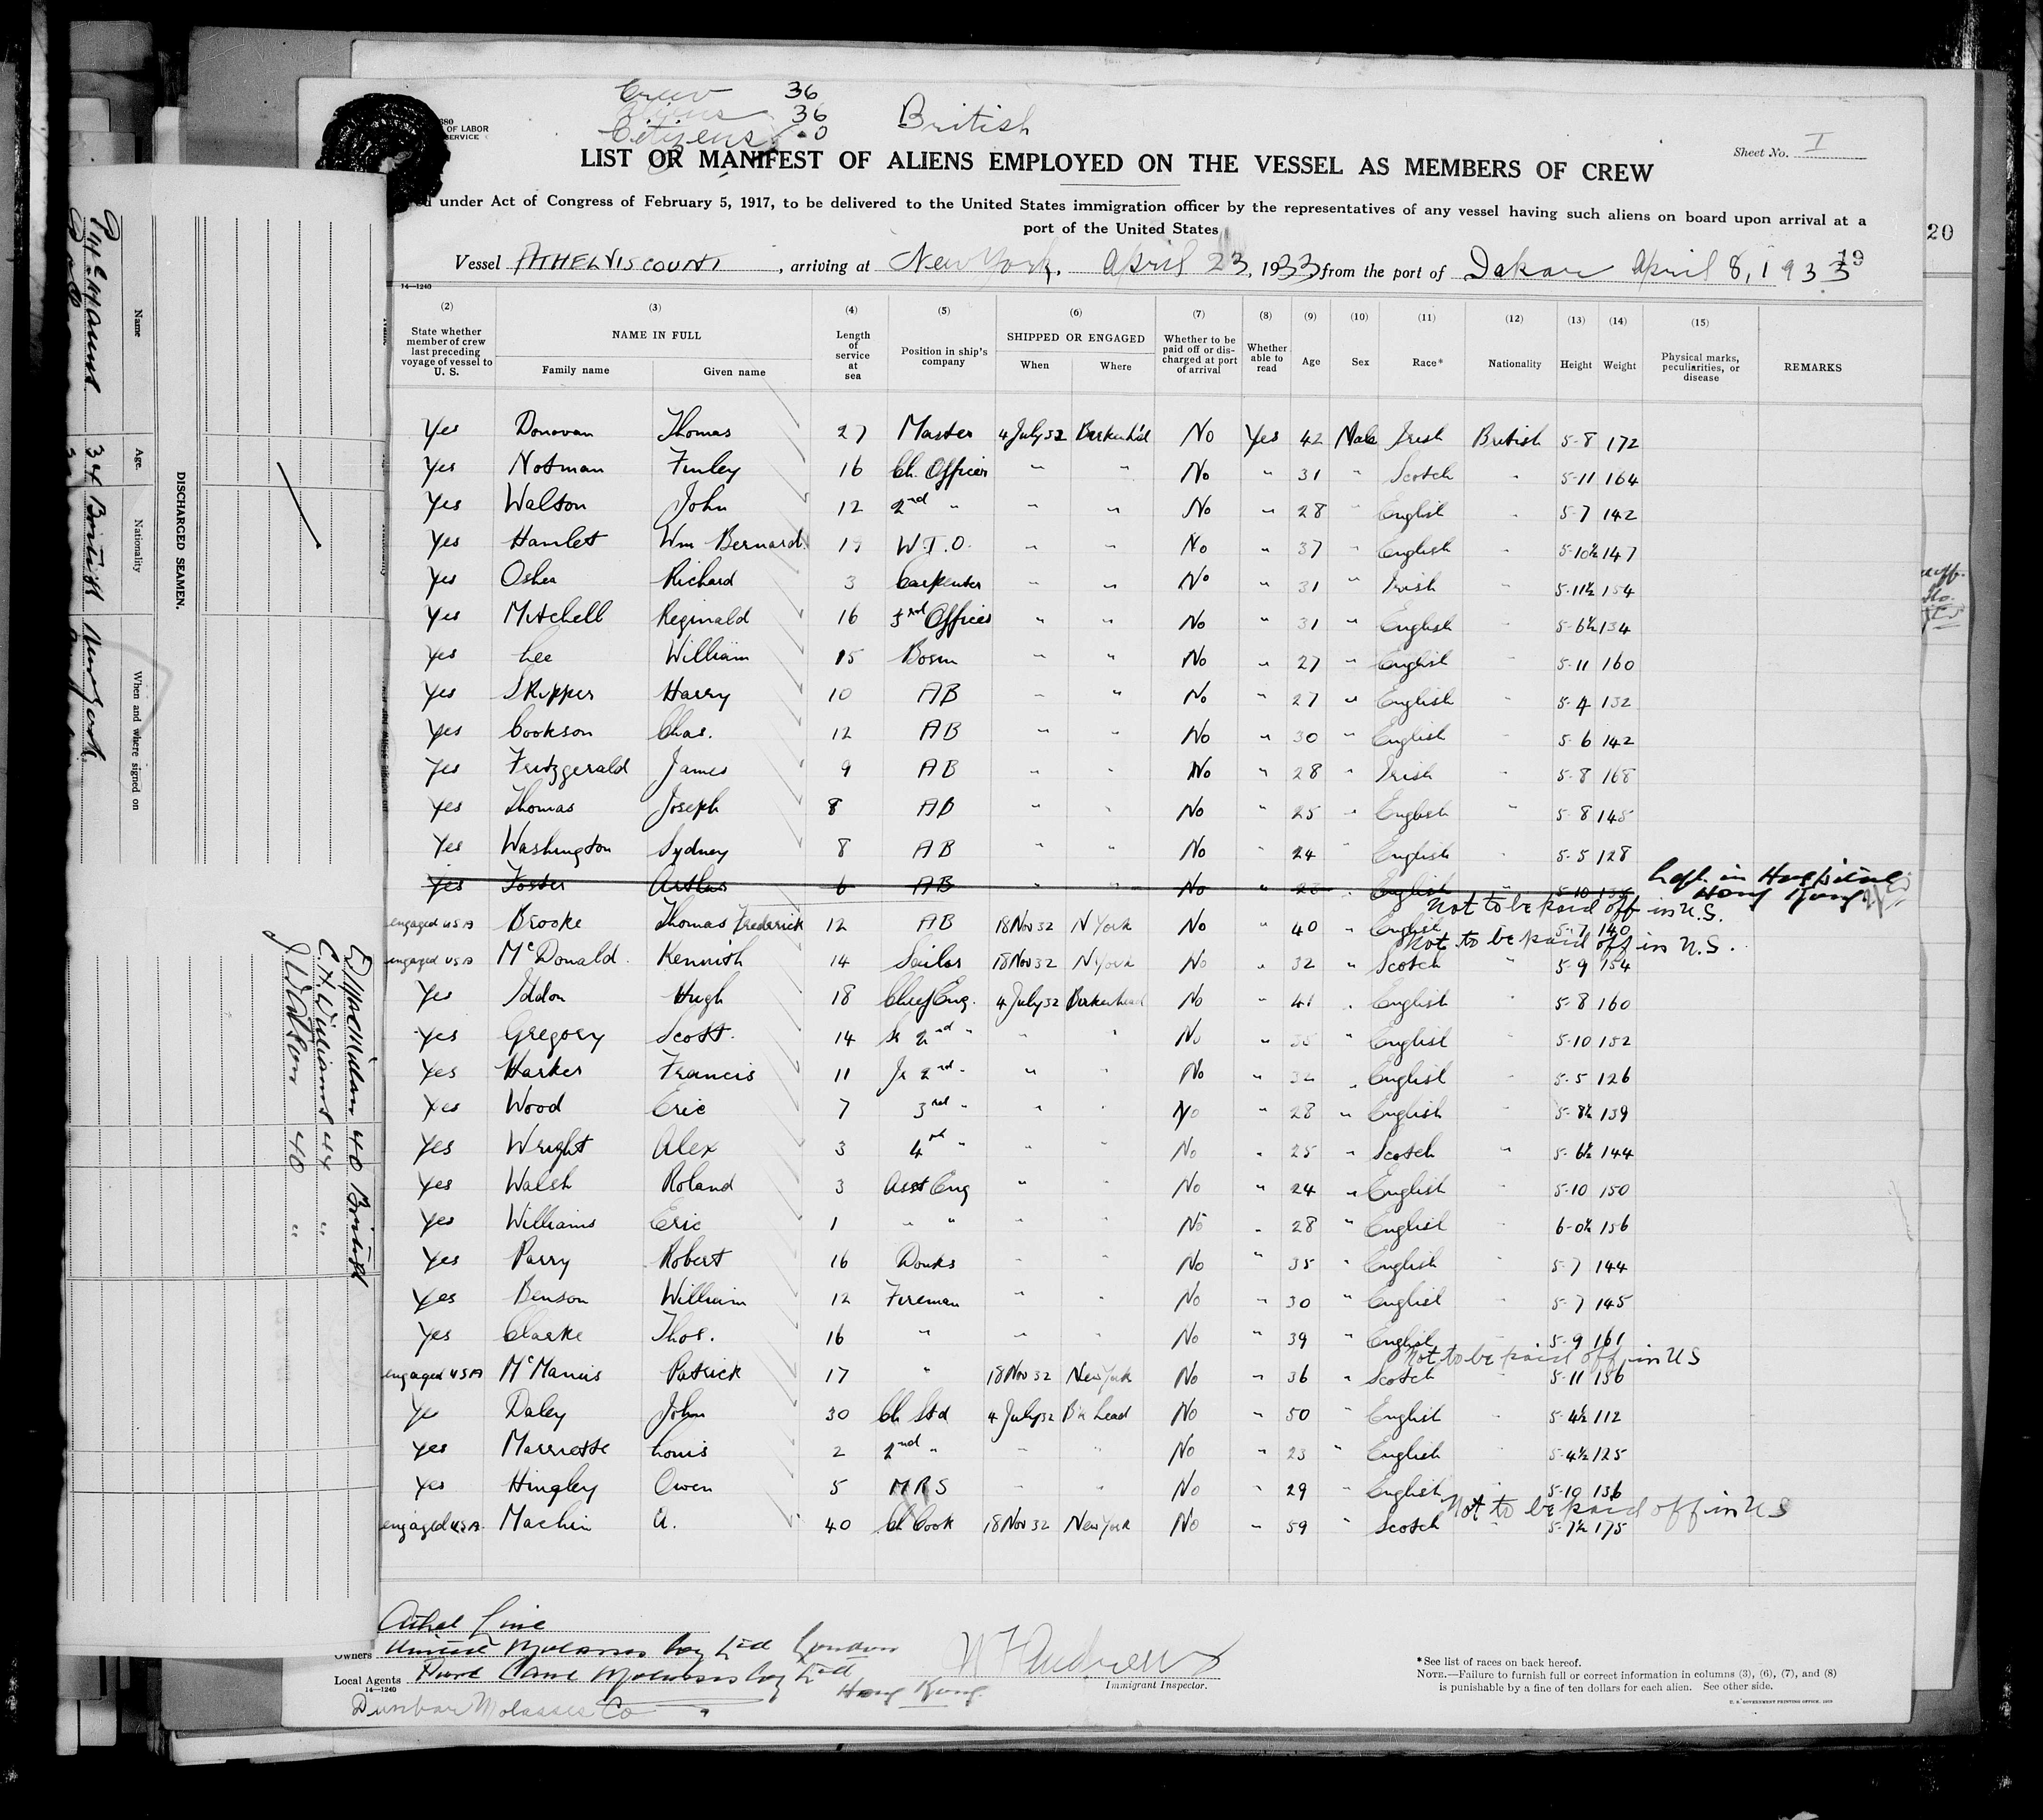 Crew 36
Aliens 36
Citizens 0 British
OF LABOR
SERVICE
Sheet No. I
LIST OR MANIFEST OF ALIENS EMPLOYED ON THE VESSEL AS MEMBERS OF CREW
under Act of Congress of February 5, 1917, to be delivered to the United States immigration officer by the representatives of any vessel having such aliens on board upon arrival at a
port of the United States
20
Vessel ATHELVISCOUNT, arriving at New York, April 23, 1933 from the port of Dakar April 8, 1933 19
14—1240
(2) (3) (4) (5) (6) (7) (8) (9) (10) (11) (12) (13) (14) (15)
State whether member of crew last preceding voyage of vessel to U. S. NAME IN FULL Family name Given name Length of service at sea Position in ship's company SHIPPED OR ENGAGED When Where Whether to be paid off or discharged at port of arrival Whether able to read Age Sex Race* Nationality Height Weight Physical marks, peculiarities, or disease REMARKS
Yes Donovan Thomas 27 Master 4 July 32 Birkenh'd No Yes 42 Male Irish British 5-8 172
Yes Notman Finley 16 Ch. Officer " " No " 31 " Scotch " 5-11 164
Yes Walson John 12 2nd " " " No " 28 " English " 5-7 142
Yes Hamlett Wm Bernard W.T.O. " " No " 37 " English " 5-10½ 147
Yes Oshea Richard 3 Carpenter " " No " 31 " Irish 5-11½ 154
Yes Mitchell Reginald 16 3rd Officer " " No " 31 " English " 5-6½ 134
Yes Lee William 15 Bosun " " No " 27 " English " 5-11 160
Yes Skipper Harry 10 AB " " No " 27 " English " 5-4 132
Yes Cookson Chas. 12 AB " " No " 30 " English " 5-6 142
Yes Fritzgerald James 9 AB " " No " 28 " Irish " 5-8 168
Yes Thomas Joseph 8 AB " " No " 25 " English " 5-8 145
Yes Washington Sydney 8 AB " " No " 24 " English " 5-5 128
Yes Foster Arthur 6 AB " " No " " English 5-10 Left in Hospital Hong Kong
Not to be paid off in U.S.
engaged USA Brooke Thomas Frederick 12 AB 18 Nov 32 N York No " 40 " English 5-7 140
Not to be paid off in U.S.
engaged USA McDonald Kennith 14 Sailor 18 Nov 32 N York No " 32 " Scotch " 5-9 154
Yes Iddon Hugh 18 Chief Eng. 4 July 32 Birkenhead No " 41 " English " 5-8 160
Yes Gregory Scott. 14 Sr 2nd " " " No " English " 5-10 152
Yes Harker Francis 11 Jr 2nd " " " No " 32 " English " 5-5 126
Yes Wood Eric 7 3rd " " " No " 28 " English " 5-8½ 139
Yes Wright Alex 3 4th " " " No " 25 " Scotch " 5-6½ 144
Yes Walsh Roland 3 Asst Eng " " No " 24 " English " 5-10 150
Yes Williams Eric 1 " " " " No " 28 " English " 6-0½ 156
Yes Parry Robert 16 Donks " " No " 35 " English " 5-7 144
Yes Benson William 12 Fireman " " No " 30 " English " 5-7 145
Yes Clarke Thos. 16 " " " No " 39 " English 5-9 161
Not to be paid off in US
engaged USA McManis Patrick 17 " 18 Nov 32 New York No " 36 " Scotch 5-11 156
Yes Daley John 30 Ch Std 4 July 32 B'k head No " 50 " English " 5-4½ 112
Yes Marriette Louis 2 2nd " " " No " 23 " English " 5-4½ 125
Yes Hingley Owen 5 MRS " " No " 29 " English " 5-10 136
Not to be paid off in US
engaged USA. Machin A. 40 Ch Cook 18 Nov 32 New York No " 59 " Scotch " 5-7½ 175
Athel Line
Owners United Molasses Coy Ltd London
Local Agents Pure Cane Molasses Coy Ltd
Hong Kong
14—1240
Dunbar Molasses Co
W F Andrews
Immigrant Inspector.
*See list of races on back hereof.
NOTE.—Failure to furnish full or correct information in columns (3), (6), (7), and (8)
is punishable by a fine of ten dollars for each alien. See other side.
DISCHARGED SEAMEN.
Name Age. Nationality When and where signed on
34 British New York
D MacMillan 40 British
C. H. Williams 44 "
J Watson 40 "